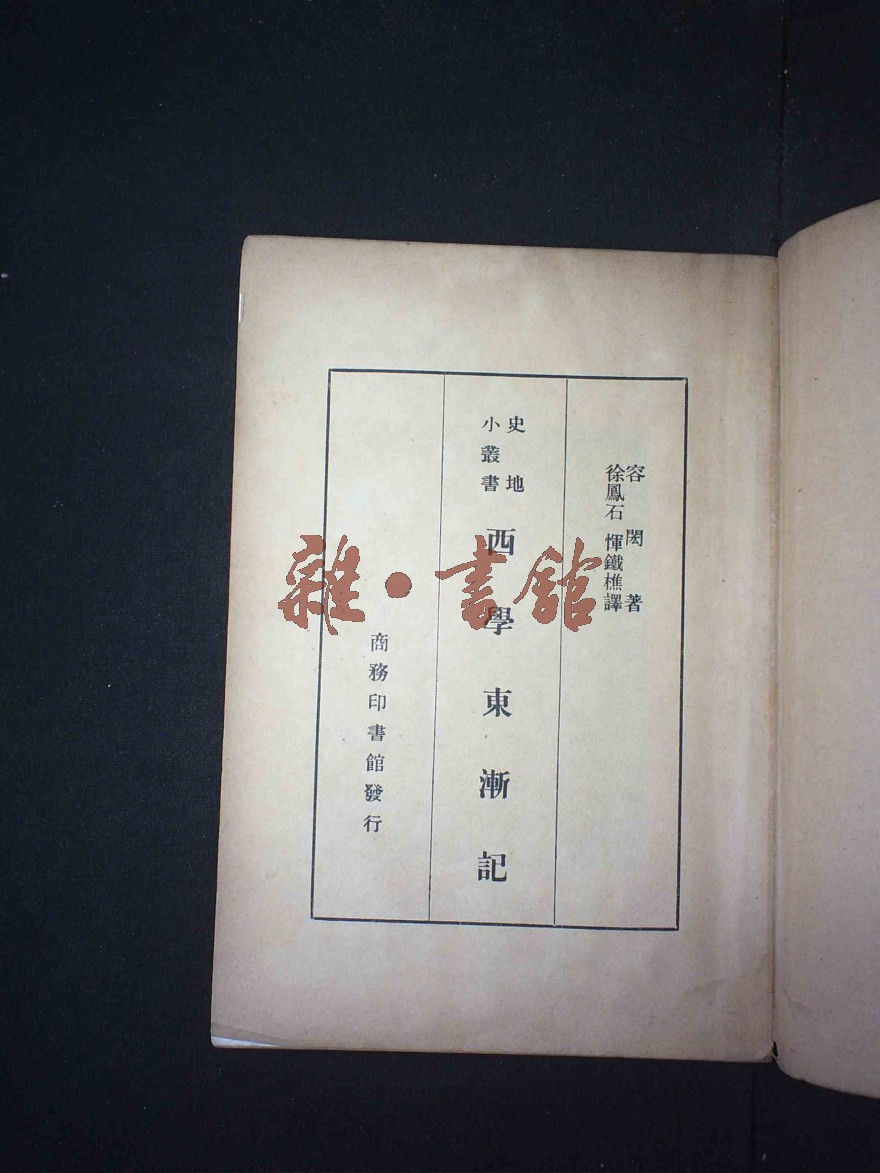 容閎著
徐鳳石 惲鐵樵譯
史地
小叢書
西學東漸記
商務印書館發行
雜·書館